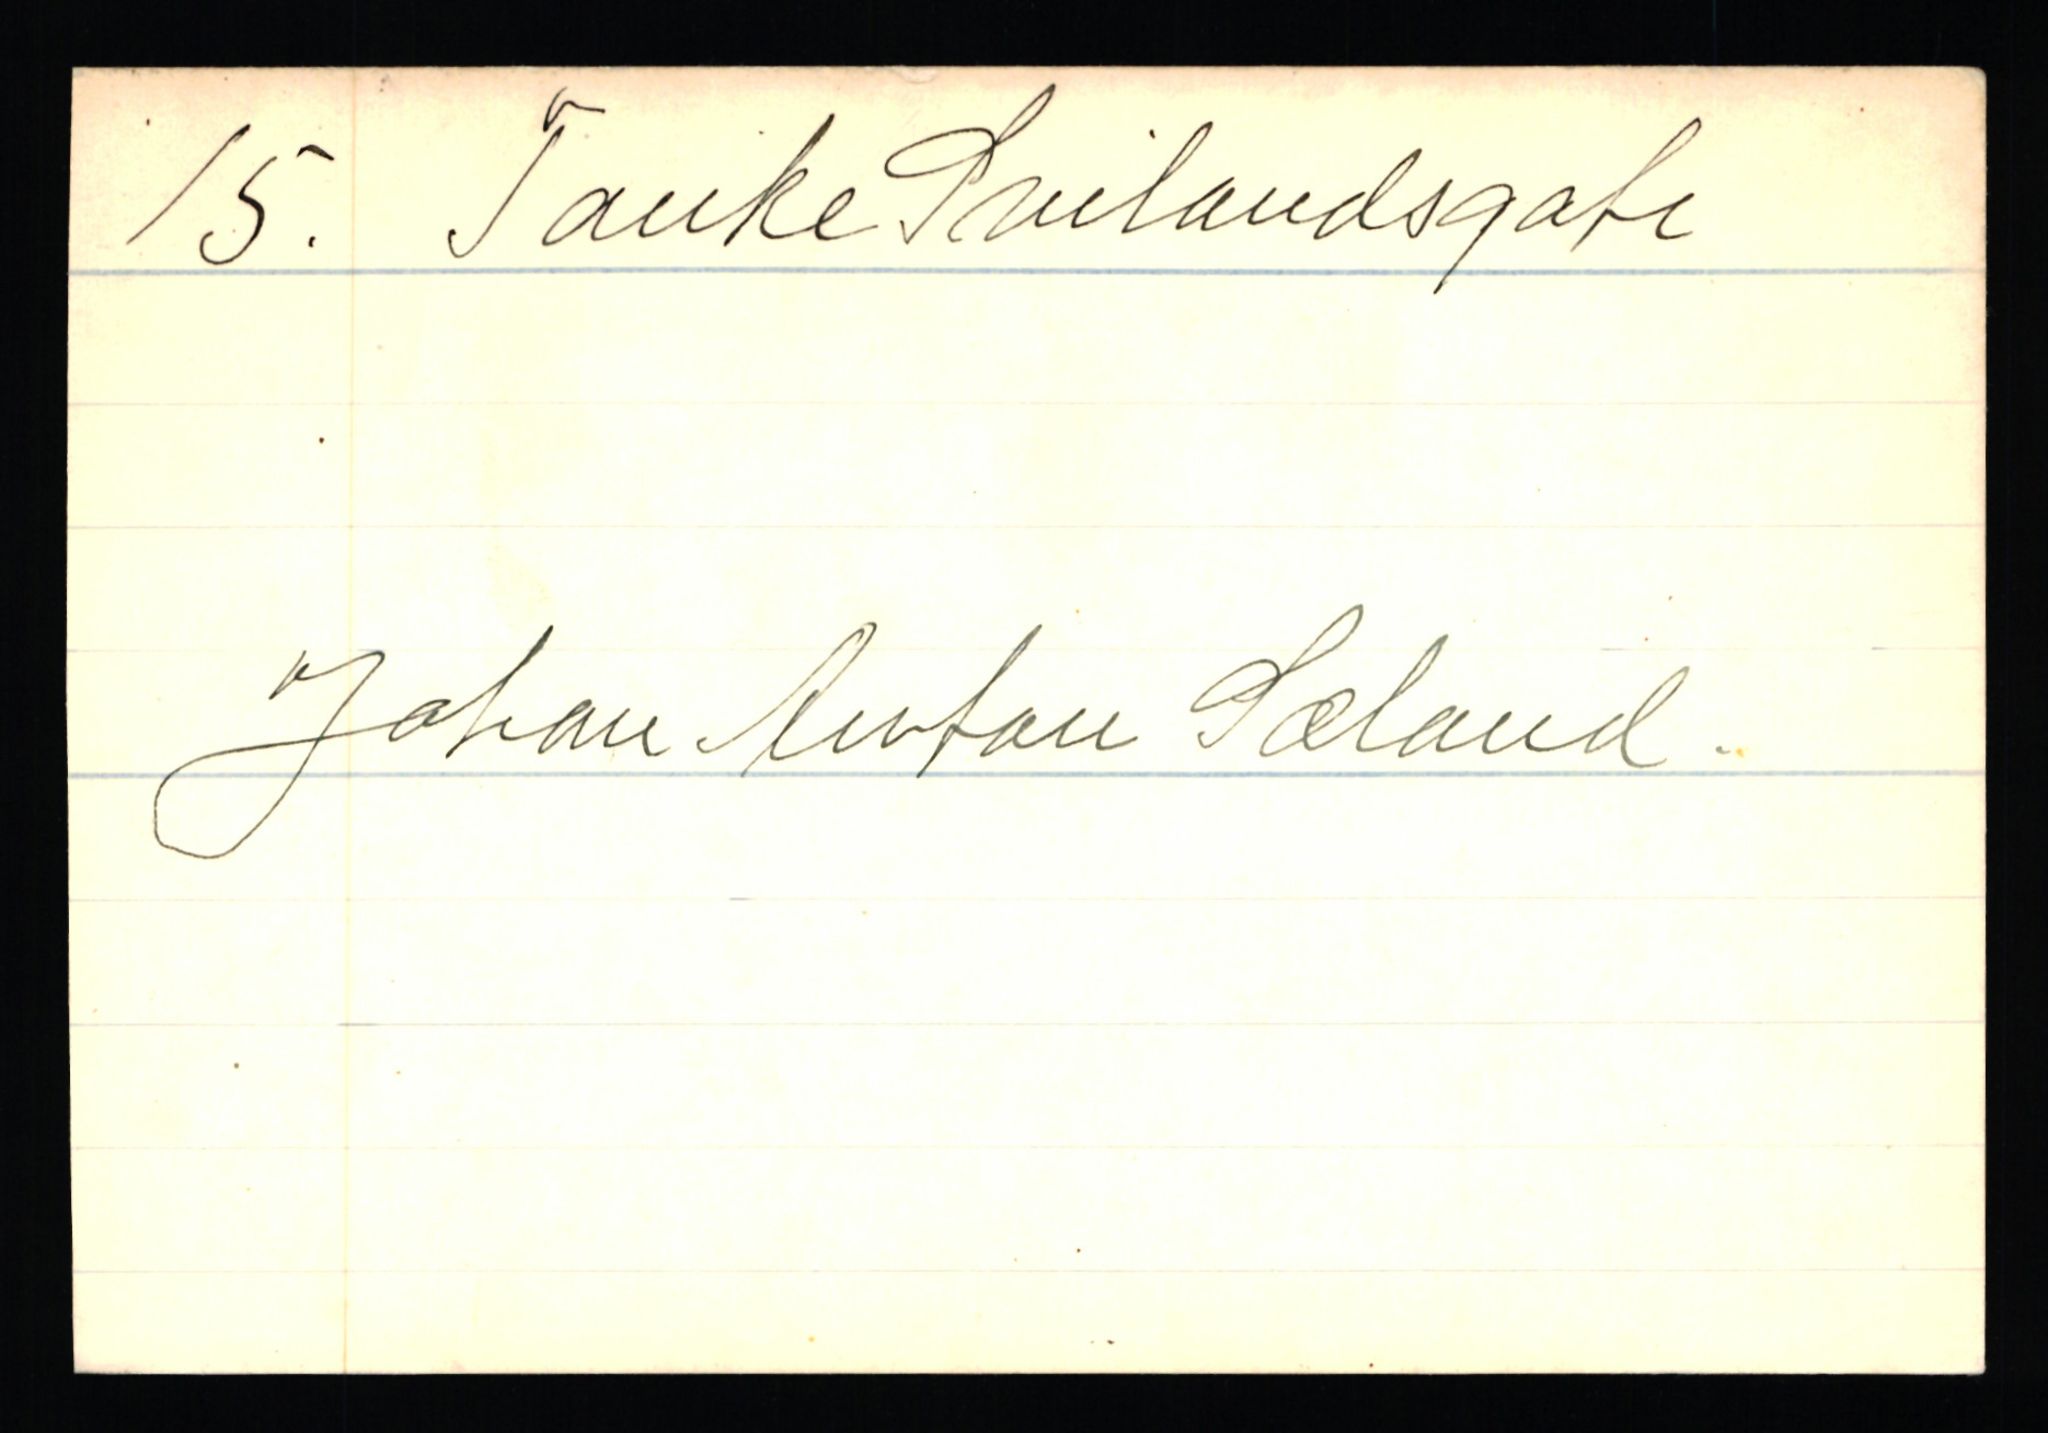 15. Tanke Svilandsgate
Johan Anton Sæland.